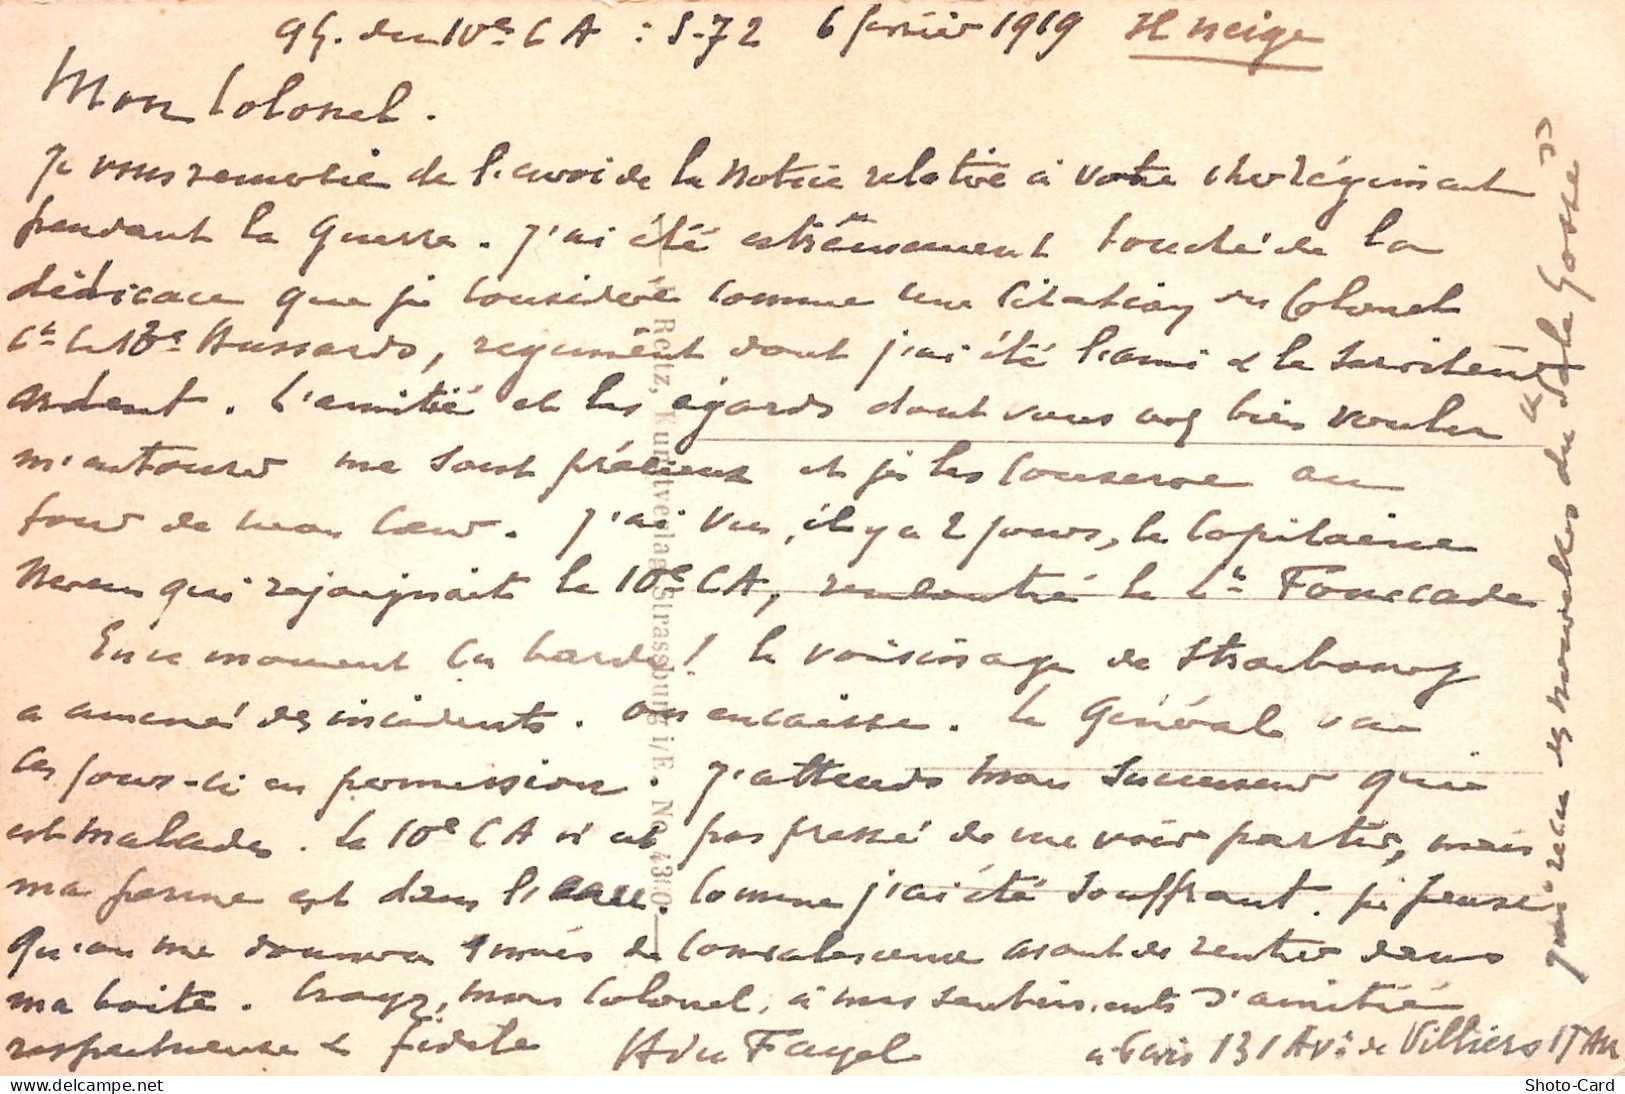 QG. du 10e CA : S-72 6 février 1919 Il neige
Mon Colonel.
Je vous remercie de l'envoi de la Notice relative à votre cher Régiment
pendant la Guerre. J'ai été extrêmement touché de la
dédicace que je considère comme une Citation du Colonel
Ct le 13e Hussards, régiment dont j'ai été l'ami & le serviteur
ardent. L'amitié et les égards dont vous avez bien voulu
m'entourer me sont précieux et je les conserve au
fond de mon cœur. J'ai vu, il y a 2 jours, le Capitaine
qui rejoignait le 10e CA, rencontré le Ct Fourcade
En ce moment ça barde! le voisinage de Strasbourg
a amené des incidents. On encaisse. Le Général va
ces jours-ci en permission. J'attends mon successeur qui
est malade. Le 10e CA n'est pas pressé de me voir partir, mais
ma forme est dans l'eau. Comme j'ai été souffrant, je pense
qu'on me donnera mois de convalescence avant de rentrer dans
ma boîte. Croyez, mon Colonel, à mes sentiments d'amitié
respectueuse & fidèle H du Fayel à Paris 131 Av. de Villiers 17 Arr
des nouvelles du "de la Gosse"
Reetz, Kunstverlag, Strassburg i/E. No. 4300
Shoto-Card